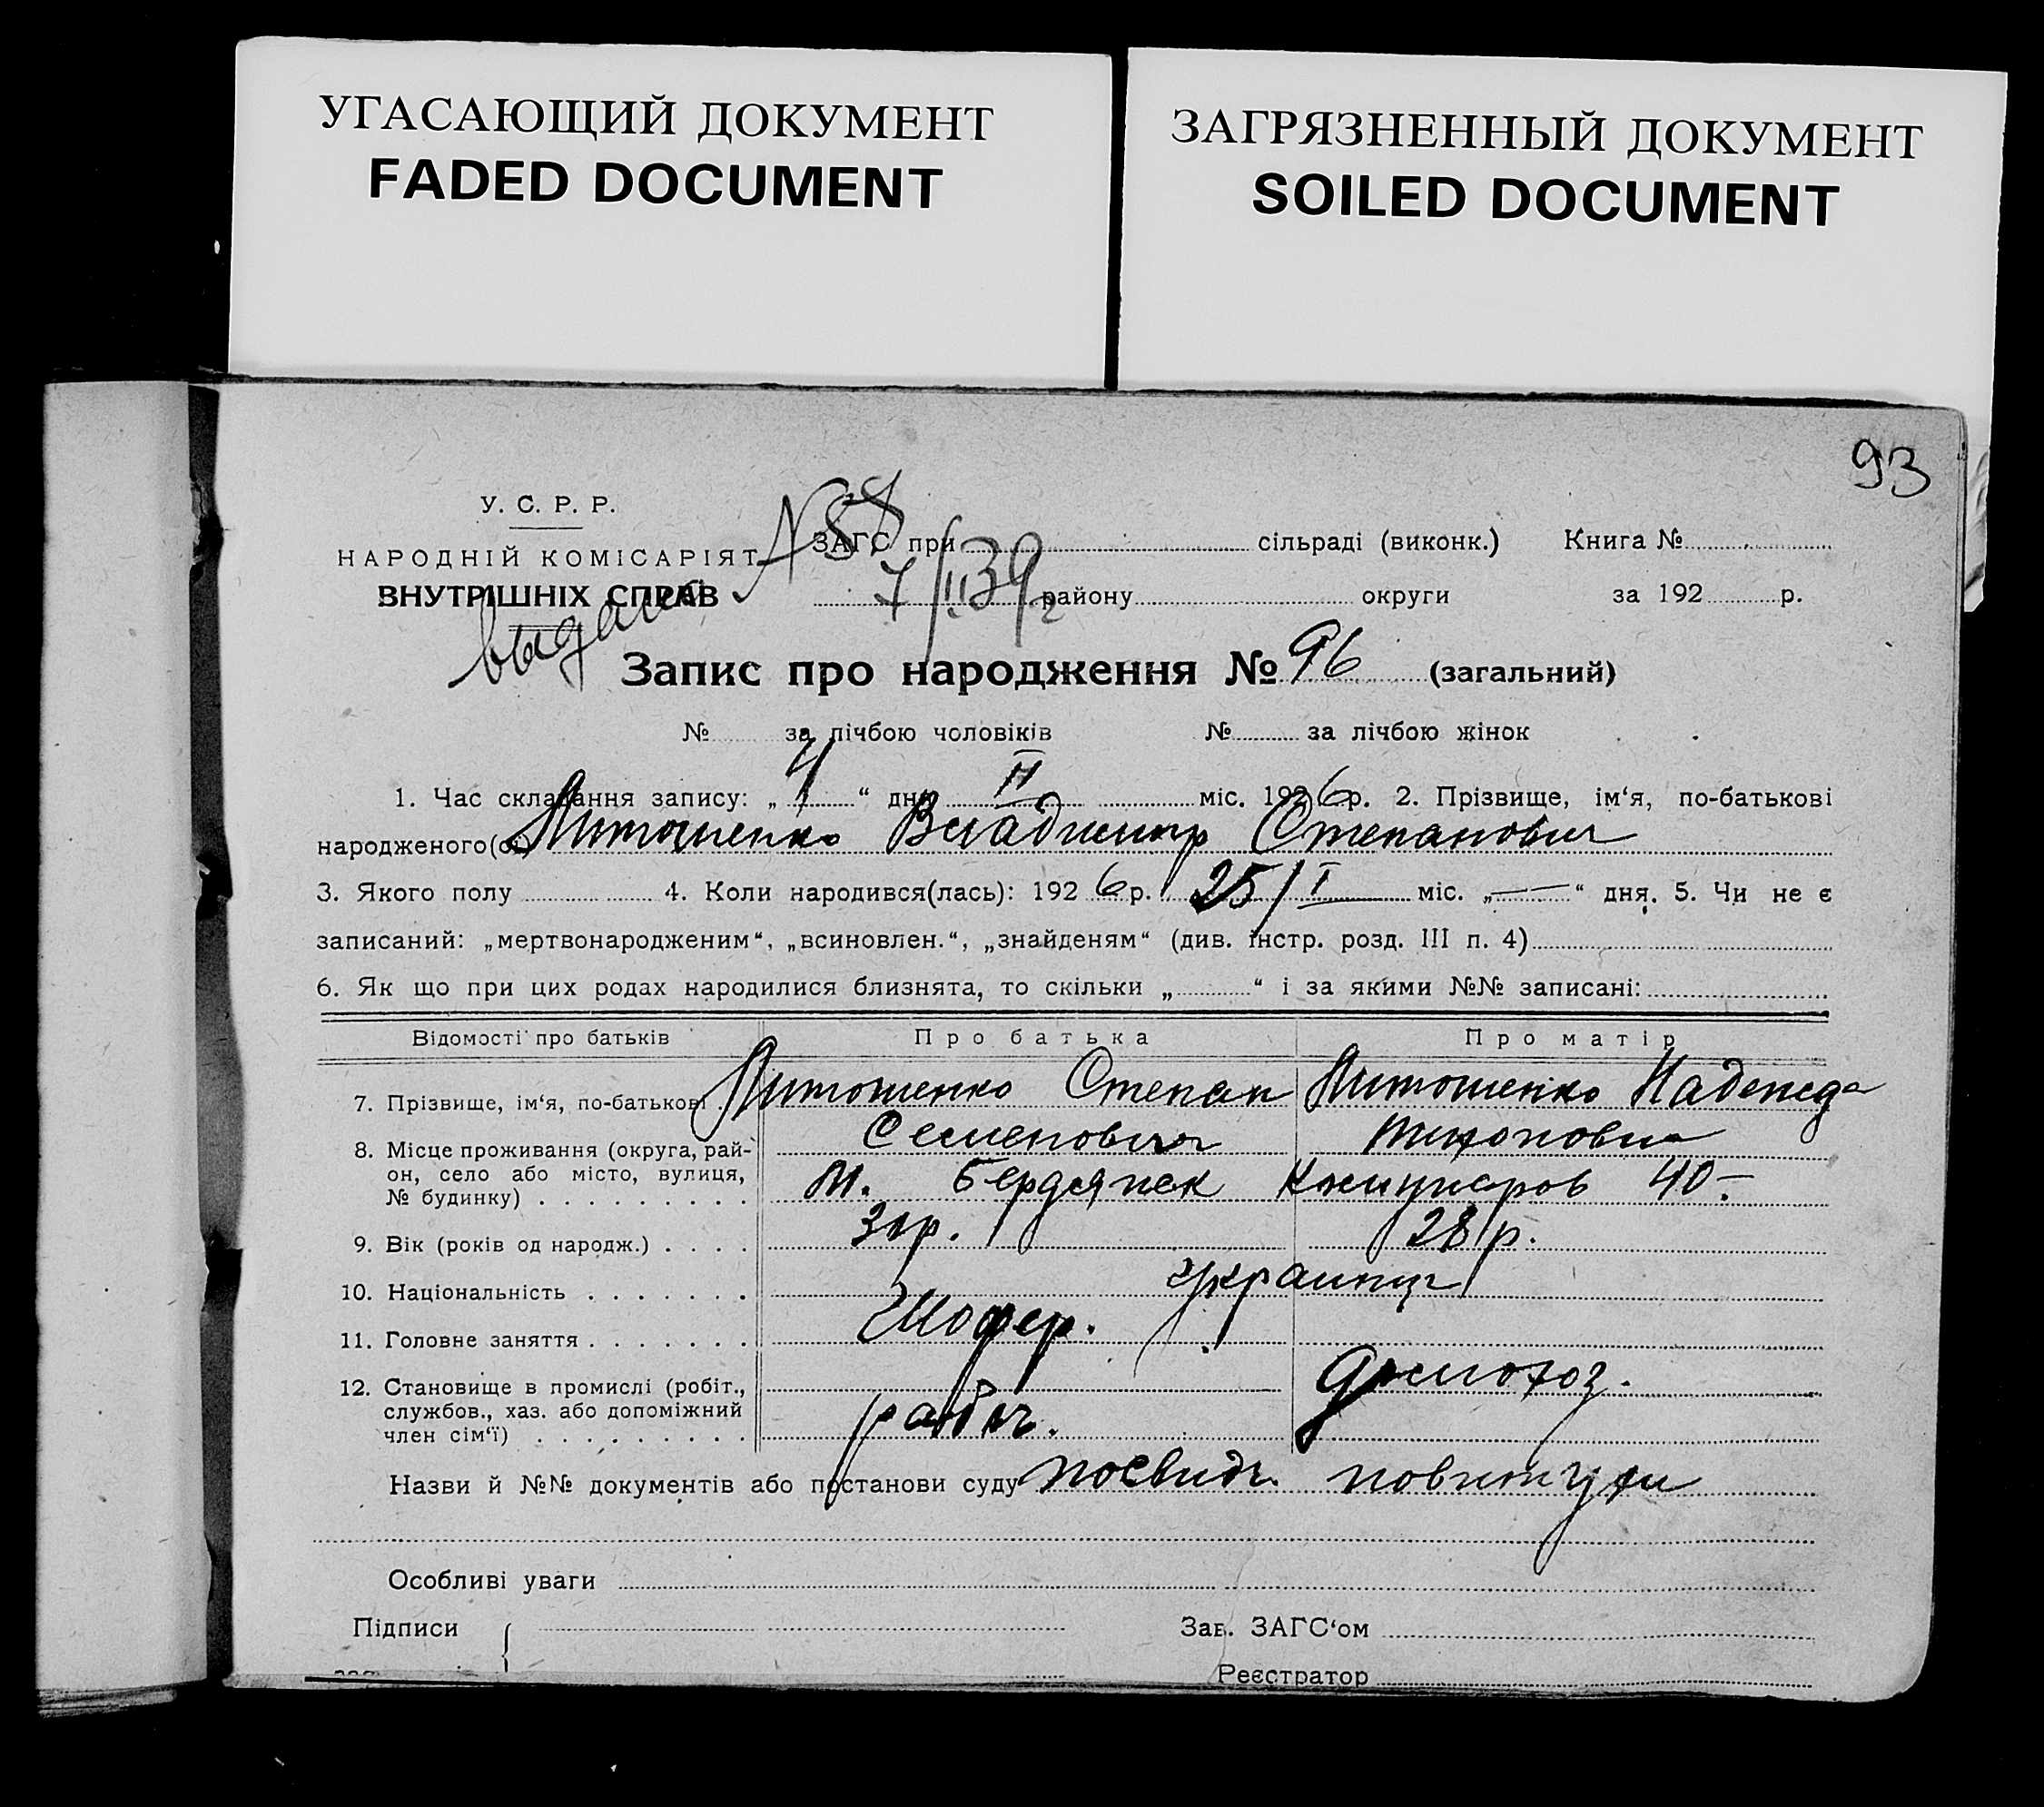 УГАСАЮЩИЙ ДОКУМЕНТ
FADED DOCUMENT
ЗАГРЯЗНЕННЫЙ ДОКУМЕНТ
SOILED DOCUMENT
93
У. С. Р. Р.
НАРОДНІЙ КОМІСАРІЯТ
ВНУТРІШНІХ СПРАВ
выдано N 88
7/II 39
ЗАГС при сільраді (виконк.) Книга №
району округи за 192 р.
Запис про народження № 96 (загальний)
№ за лічбою чоловіків № за лічбою жінок
1. Час складання запису: „ 4 “ дня II міс. 1926 р. 2. Прізвище, ім‘я, по-батькові
народженого(ої) Литошенко Владимир Степанович
3. Якого полу 4. Коли народився(лась): 1926 р. 25/I міс. „ — “ дня. 5. Чи не є
записаний: „мертвонародженим“, „всиновлен.“, „знайденям“ (див. інстр. розд. III п. 4)
6. Як що при цих родах народилися близнята, то скільки „ “ і за якими №№ записані:
Відомості про батьків Про батька Про матір
7. Прізвище, ім‘я, по-батькові Литошенко Степан Литошенко Надежда
Семенович Тихоновна
8. Місце проживання (округа, рай-
он, село або місто, вулиця,
№ будинку) М. Бердянск 40 -
9. Вік (років од народж.) 28 р.
10. Національність украинцы
11. Головне заняття Шофер.
12. Становище в промислі (робіт.,
службов., хаз. або допоміжний
член сім‘ї) рабоч. домохоз.
Назви й №№ документів або постанови суду посвидч. повитухи
Особливі уваги
Підписи Зав. ЗАГС‘ом
Реєстратор